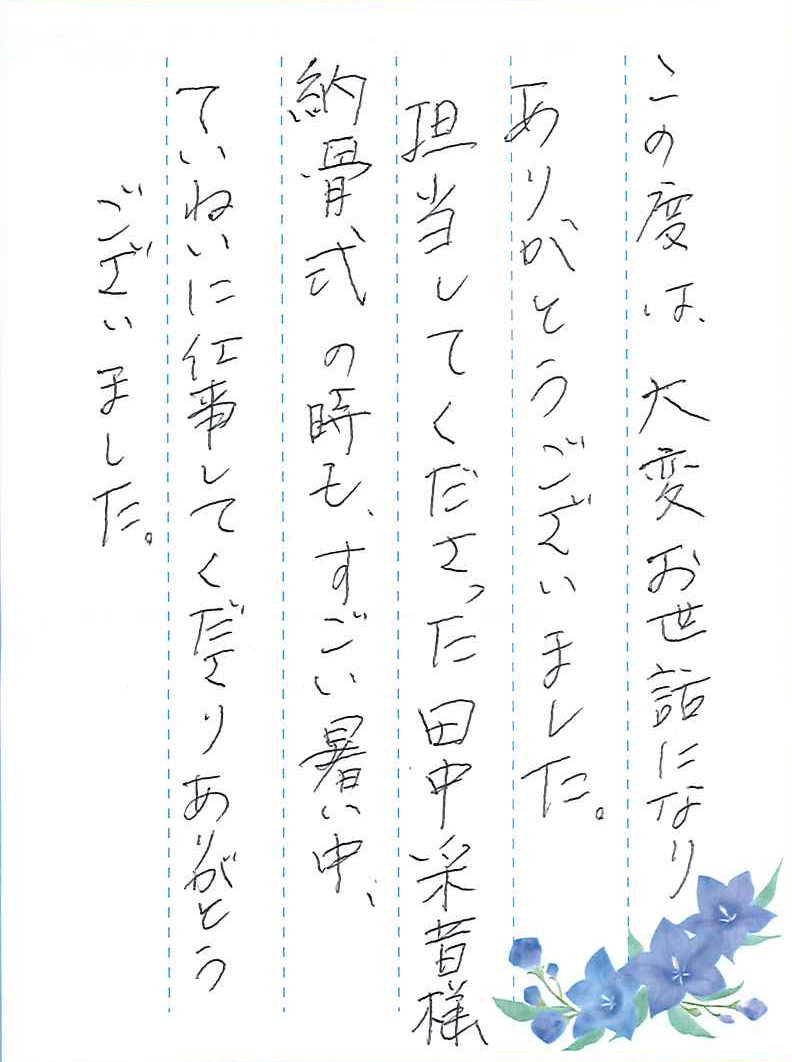 この度は、大変お世話になり
ありがとうございました。
担当してくださった田中采昔様
納骨式の時も、すごい暑い中、
ていねいに仕事してくださりありがとう
ございました。